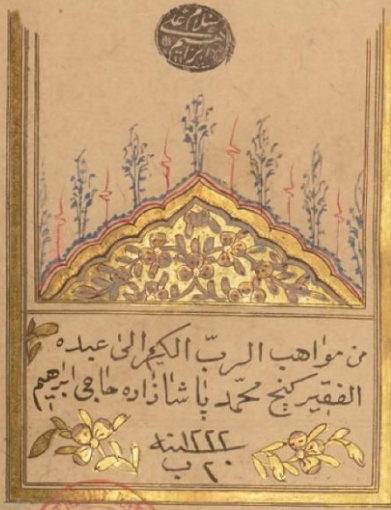 سلام على
ابراهيم
من مواهب الربّ الكريم الى عبده
الفقير كنج محمّد پاشا زاده حاجى ابرٰهيم
سنة ١٢٢٢
ب ٢